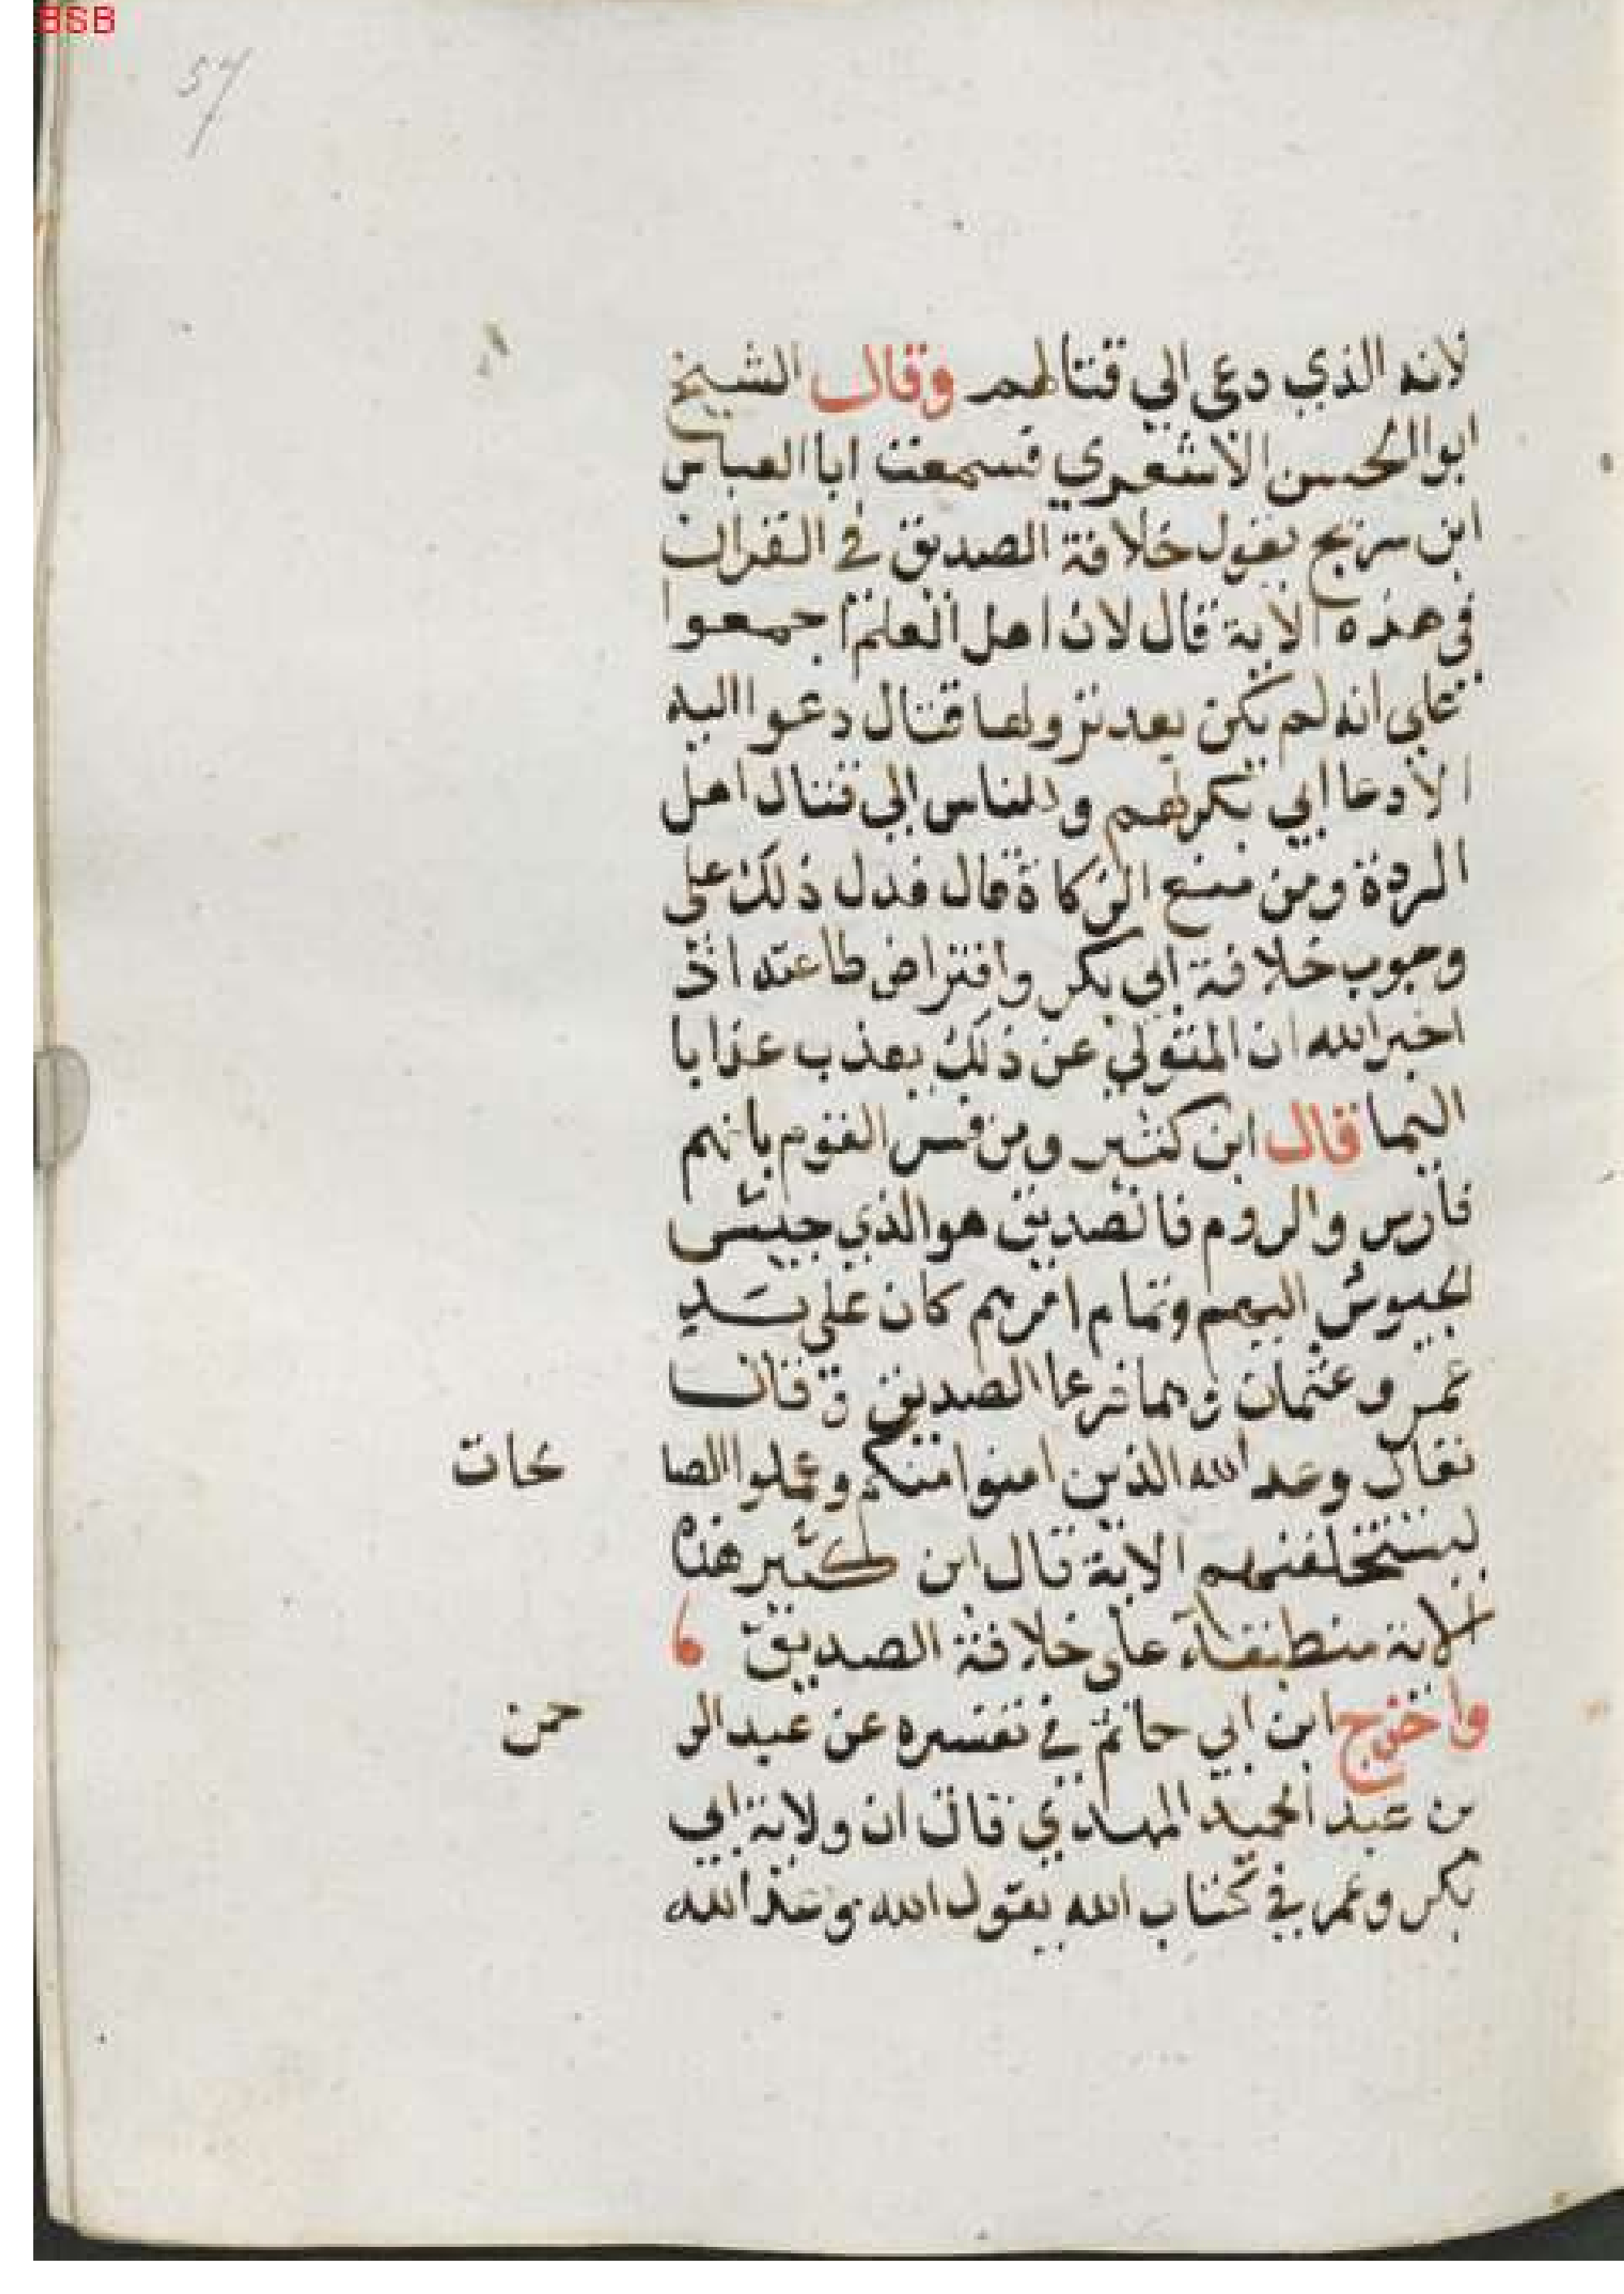 BSB
57
لانه الذي دعى الي قتالهم وقال الشيخ
ابو الحسن الاشعري فسمعت ابا العباس
ابن سريج يقول خلافة الصديق في القران
في هذه الاية قال لان اهل العلم اجمعوا
على انه لم يكن بعد نزولها قتال دعوا اليه
الا دعا ابي بكر لهم وللناس الي قتال اهل
الردة ومن منع الزكاة قال فدل ذلك على
وجوب خلافة ابي بكر وافتراض طاعته اذ
اخبر الله ان المتولي عن ذلك يعذب عذابا
اليما قال ابن كثير ومن فسر القوم بانهم
فارس والروم فالصديق هو الذي جيش
الجيوش اليهم وتمام امرهم كان على يد
عمر وعثمان وهما فرعا الصديق وقال
تعالى وعد الله الذين امنوا منكم وعملوا الصا
لحات
ليستخلفنهم الاية قال ابن كثير هذه
الاية منطبقة على خلافة الصديق
واخرج ابن ابي حاتم في تفسيره عن عبد الر
حمن
بن عبد الحميد المهدي قال ان ولاية ابي
بكر وعمر في كتاب الله يقول الله وعد الله